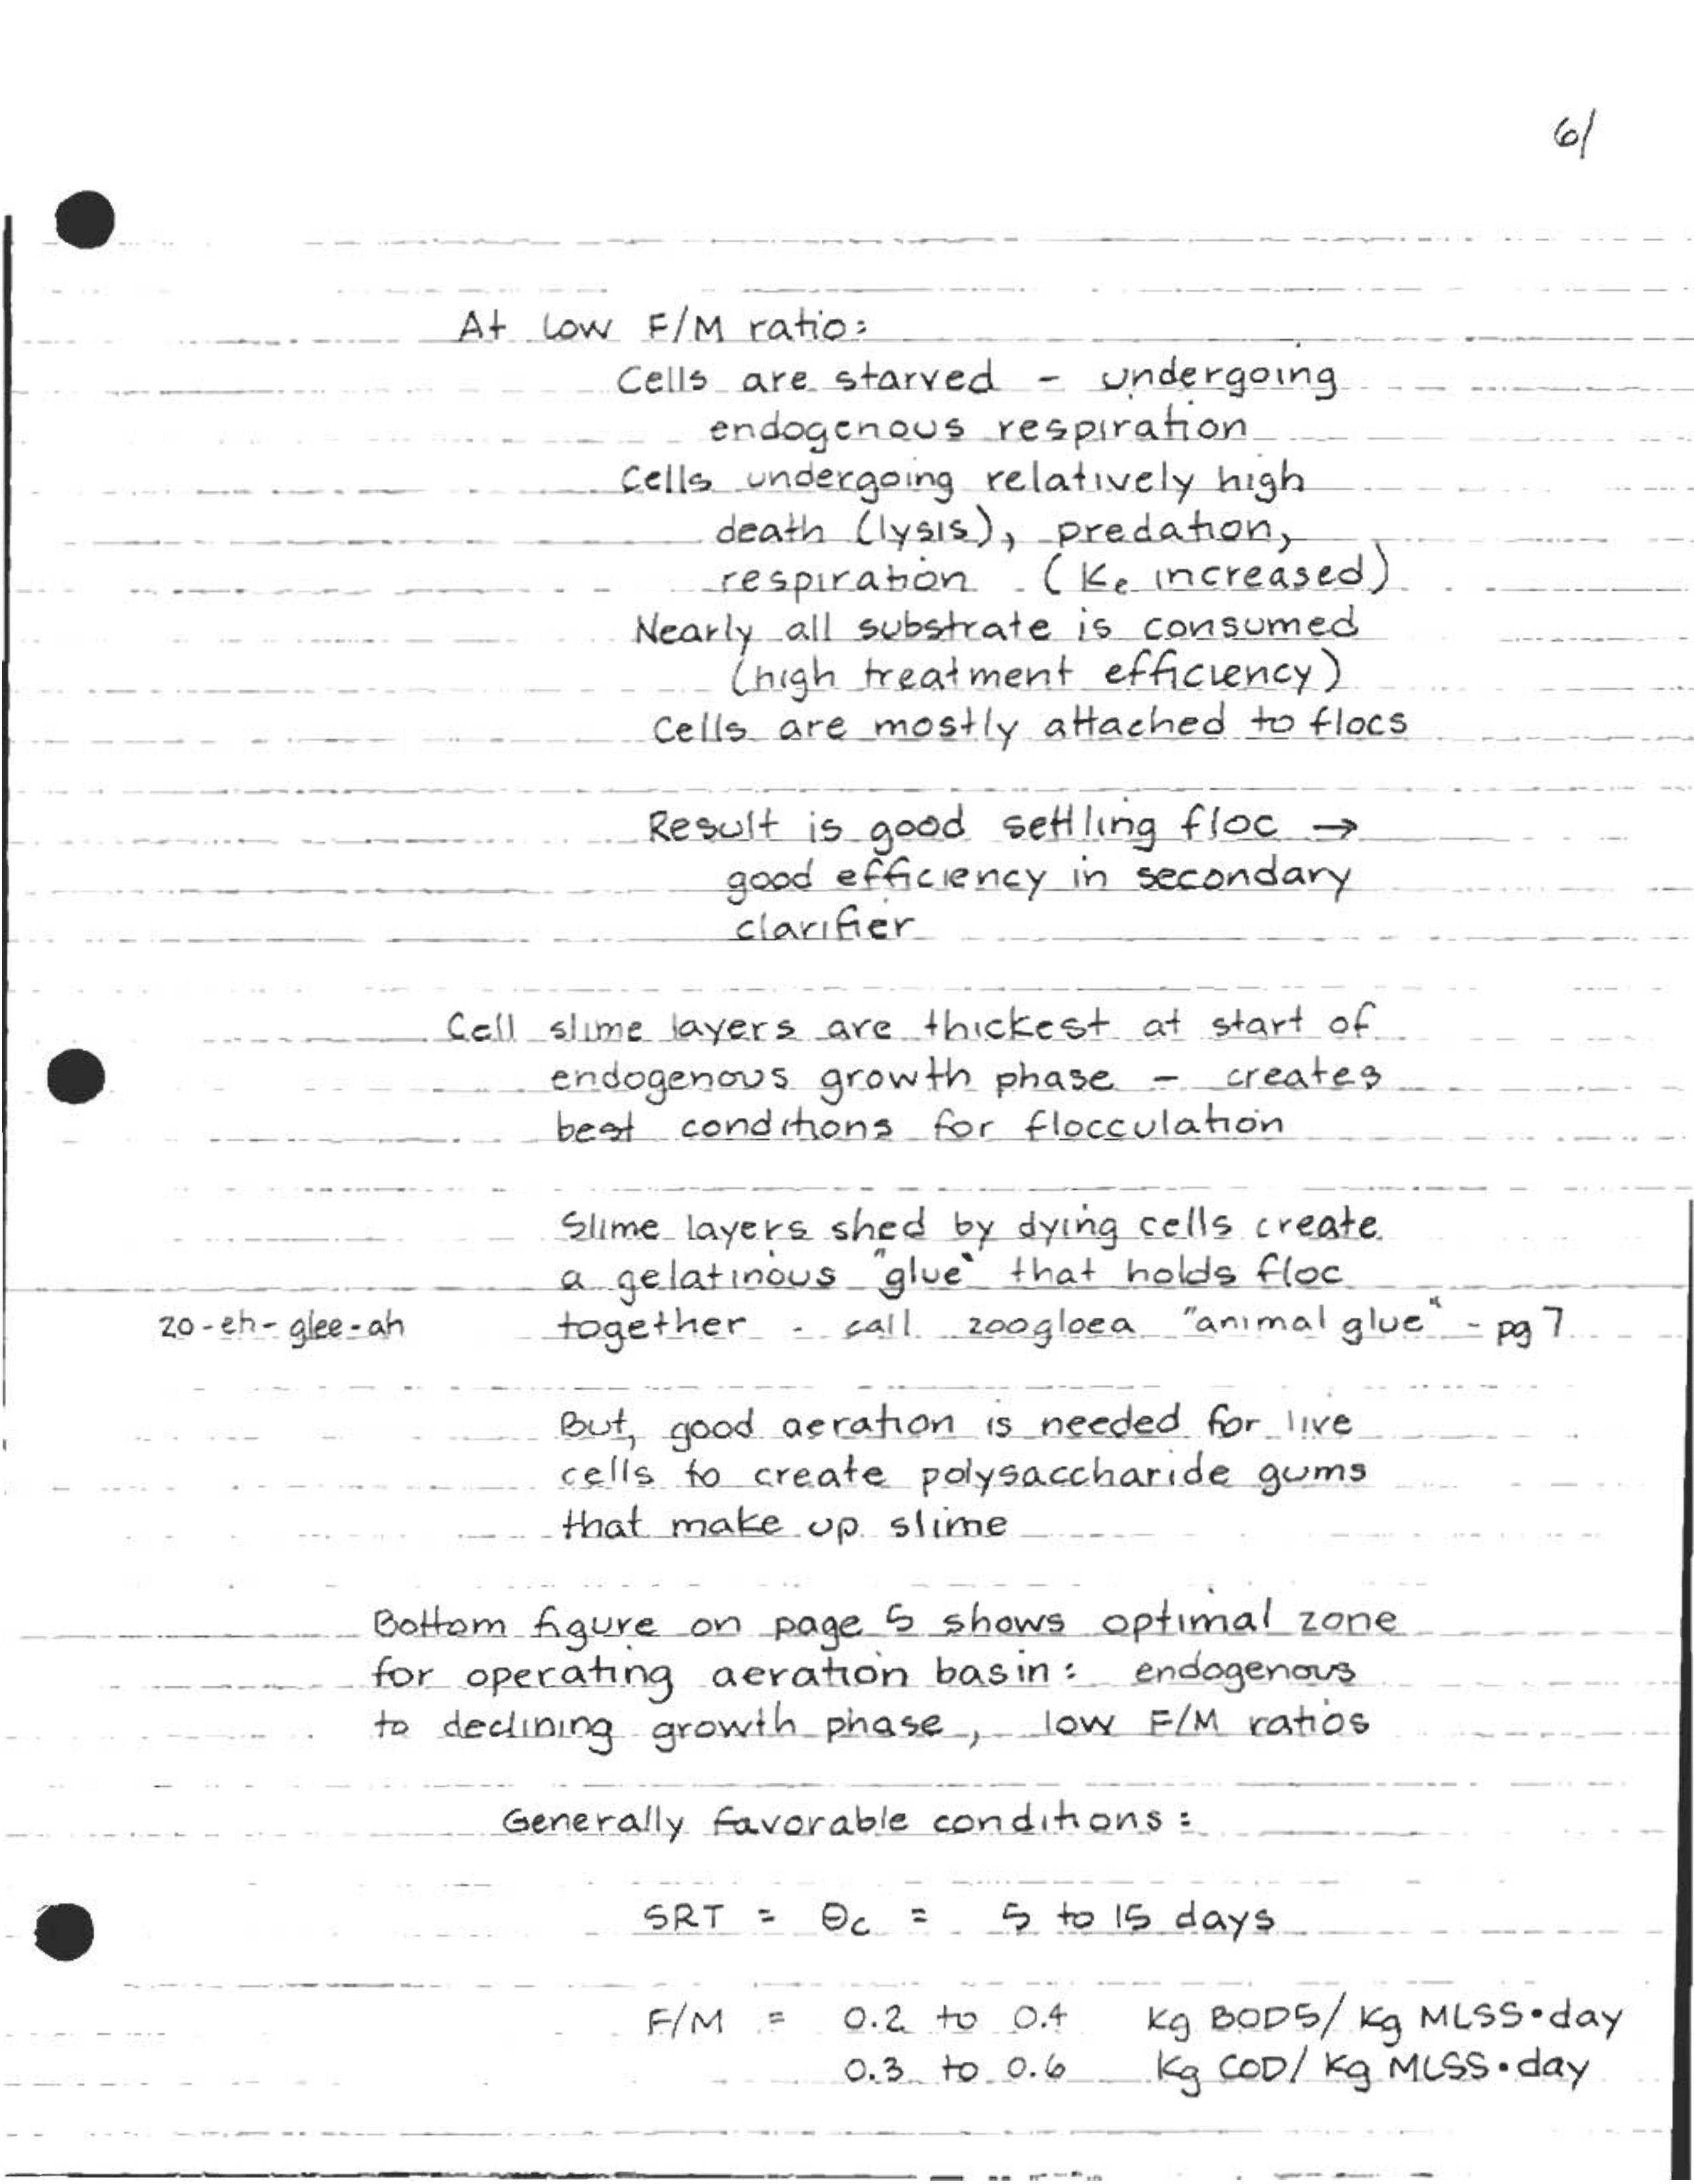 6/
At low F/M ratio:
Cells are starved - undergoing
endogenous respiration
Cells undergoing relatively high
death (lysis), predation,
respiration (Ke increased)
Nearly all substrate is consumed
(high treatment efficiency)
Cells are mostly attached to flocs
Result is good settling floc →
good efficiency in secondary
clarifier
Cell slime layers are thickest at start of
endogenous growth phase - creates
best conditions for flocculation
Slime layers shed by dying cells create
a gelatinous "glue" that holds floc
zo-eh-glee-ah together - call zoogloea "animal glue" - pg 7
But, good aeration is needed for live
cells to create polysaccharide gums
that make up slime
Bottom figure on page 5 shows optimal zone
for operating aeration basin: endogenous
to declining growth phase, low F/M ratios
Generally favorable conditions:
SRT = Θc = 5 to 15 days
F/M = 0.2 to 0.4 Kg BOD5/Kg MLSS•day
0.3 to 0.6 Kg COD/Kg MLSS•day